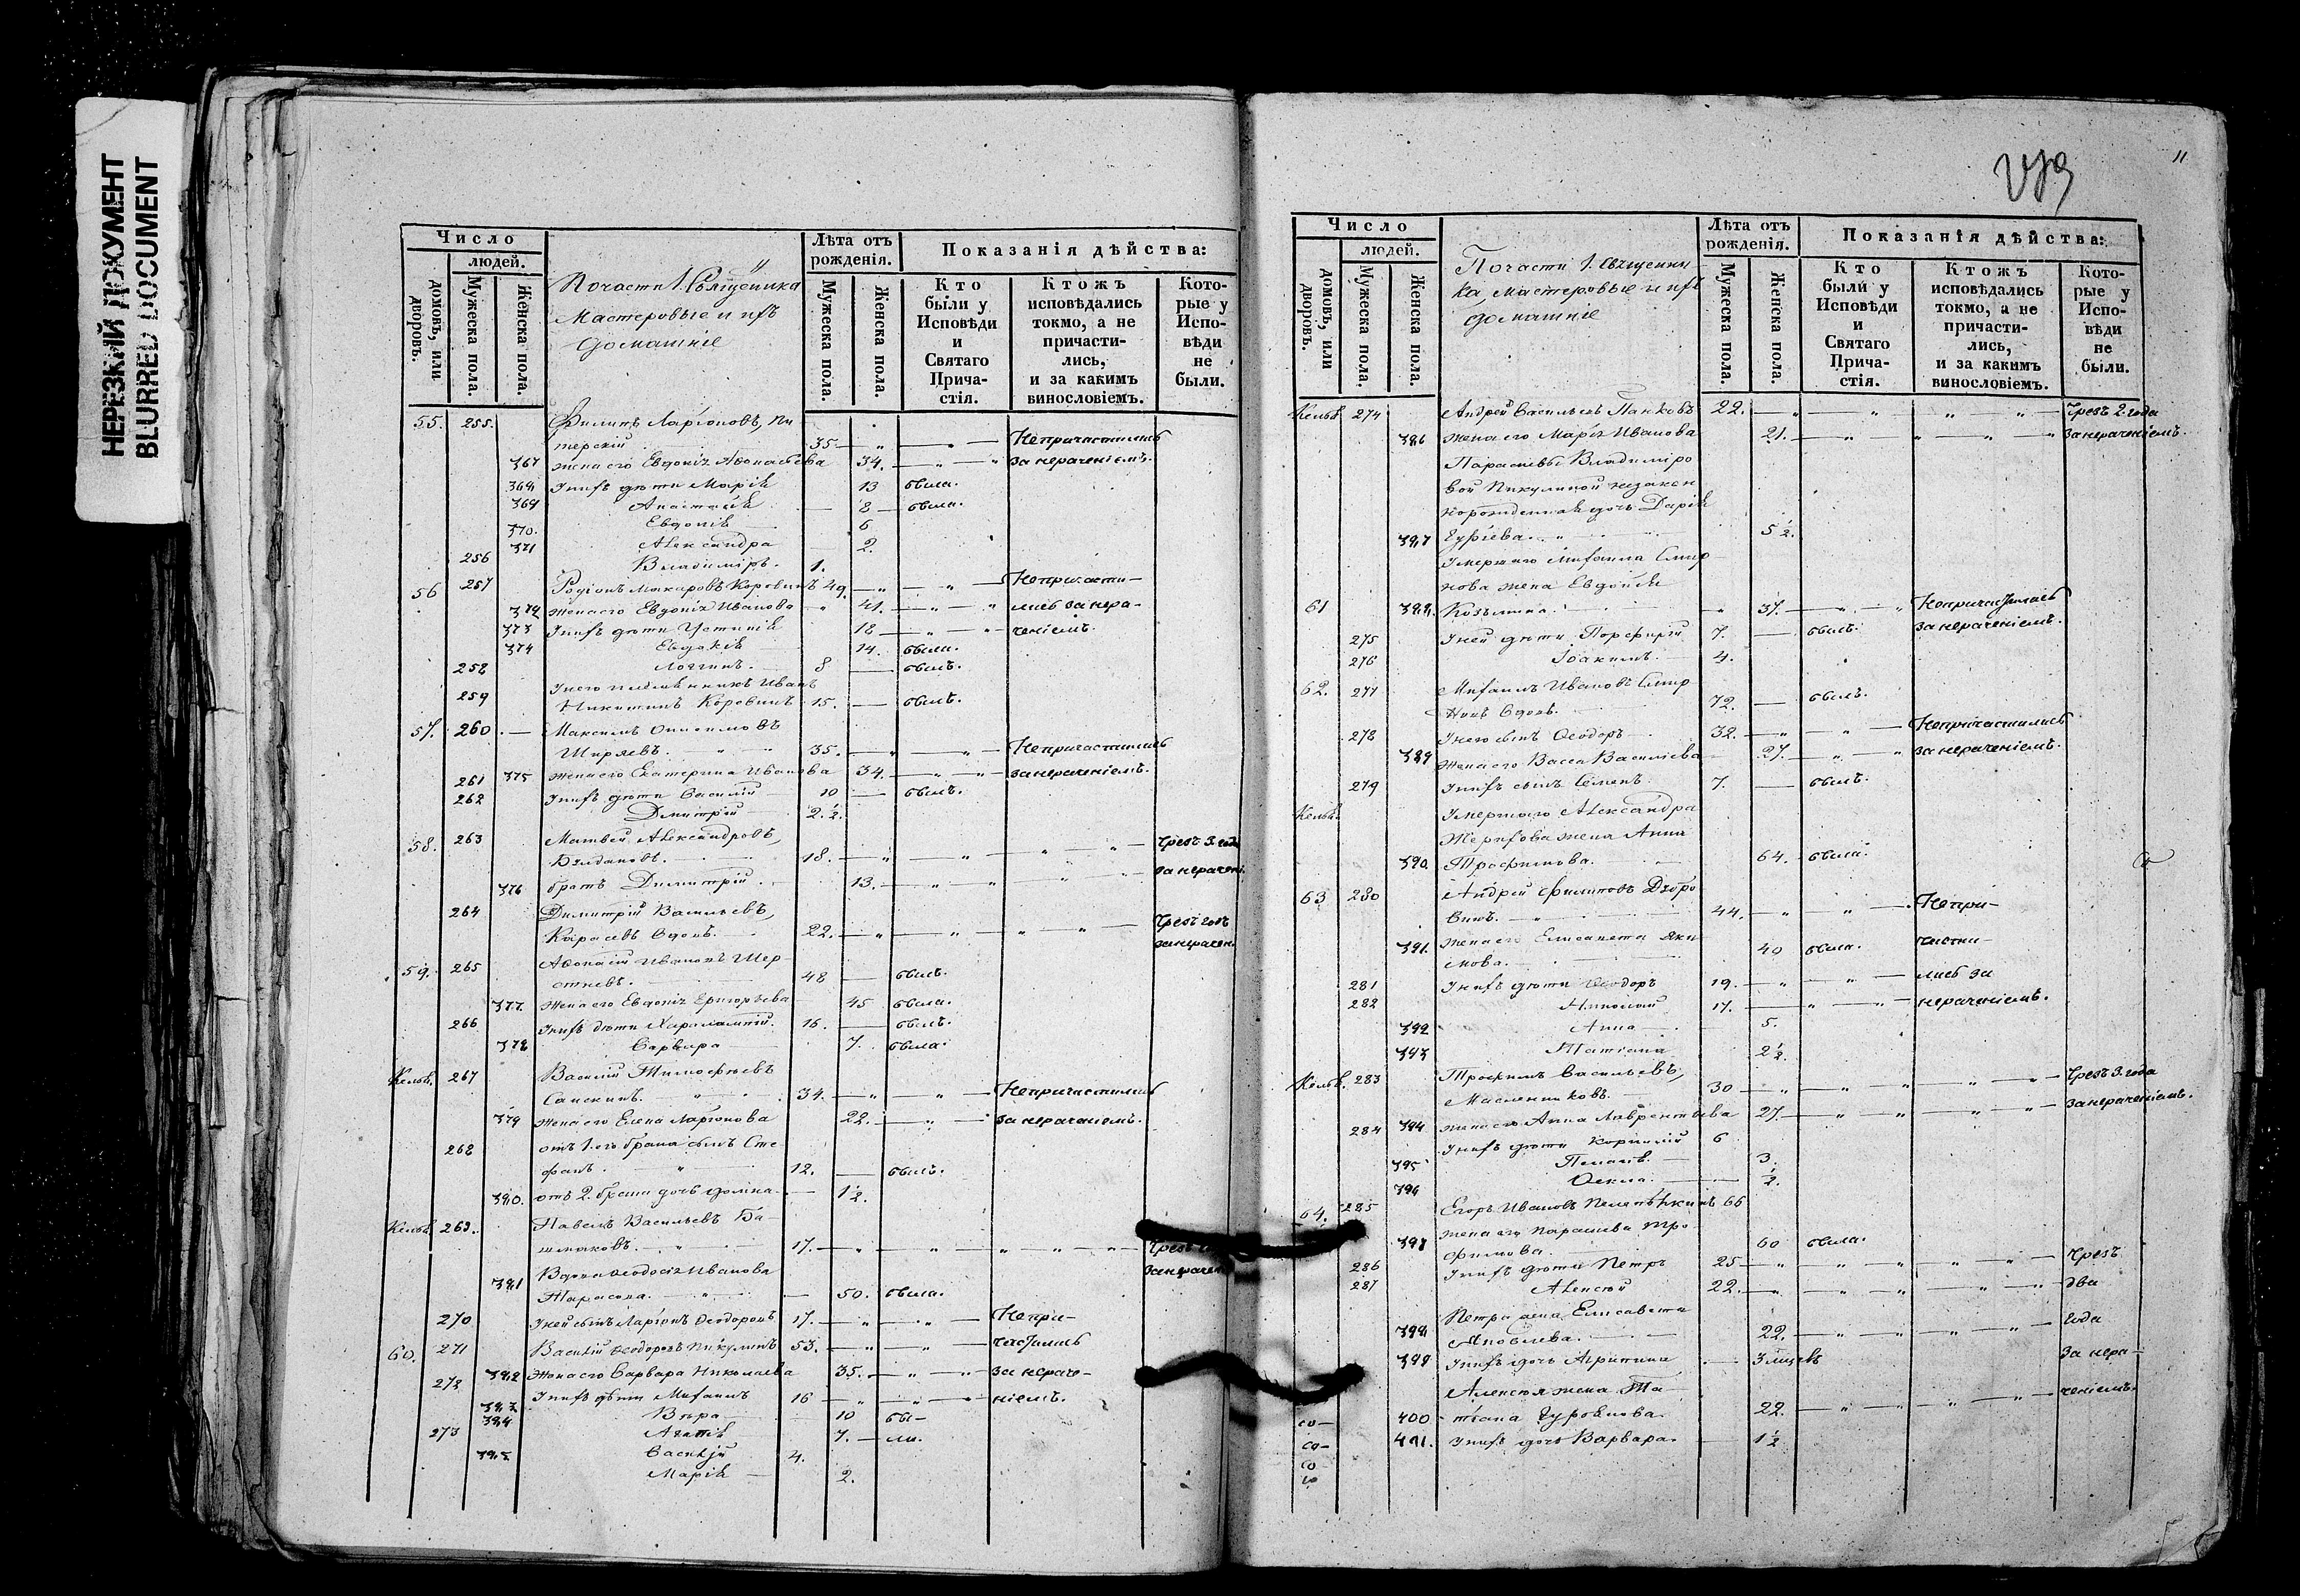 НЕРЕЗКИЙ ДОКУМЕНТ
BLURRED DOCUMENT
Число
людей.
домовъ, или дворовъ.
Мужеска пола.
Женска пола.
По части 1. Священника
Мастеровые и ихъ
домашніе
Лѣта отъ рожденія.
Мужеска пола.
Женска пола.
Показанія дѣйства:
Кто были у Исповѣди и Святаго Прича-стія.
Ктожъ исповѣдались токмо, а не причасти-лись, и за какимъ винословіемъ.
Кото-рые у Испо-вѣди не были.
55. 255. Филипъ Ларіоновъ, Пи
терскій 35. Непричастились
367 жена его Евдокія Аѳонасьева 34. за нераченіемъ.
368 У нихъ дѣти Марія 13 была.
369 Анастасія 8 была.
370. Евдокія 6
371 Александра 2.
256 Владиміръ. 1.
56 257 Родіонъ Макаровъ Коровинъ 49. Непричасти-
372 жена его Евдокія Иванова 41. лись за нера-
373 У нихъ дѣти Устинія 18 ченіемъ.
374 Евдокія 14. была.
258 Логгинъ. 8 былъ.
259 У него племянникъ Иванъ
Никитинъ Коровинъ 15. былъ.
57. 260 Максимъ Онисимовъ
Ширяевъ. 35. Непричастились
375 жена его Екатерина Иванова 34. за нераченіемъ.
261 У нихъ дѣти Василій 10 былъ.
262 Димитрій 2 1/2.
58. 263 Матвей Александровъ,
18. Чрезъ 3. года
376 братъ Димитрій. 13. за нерачені.
264 Димитрій Васильевъ,
Карасевъ вдовъ. 22. Чрезъ годъ
за нерачен.
59. 265 Аѳонасій Ивановъ Шер-
стневъ. 48 былъ.
377 жена его Евдокія Григорьева 45 была.
266 У нихъ дѣти Харалампій. 16. былъ.
378 Варвара 7. была.
Келья. 267 Василій Тимофеевъ
Санкинъ. 34. Непричастились
379 жена его Елена Ларіонова 22. за нераченіемъ.
268 отъ 1. его брака сынъ Сте-
фанъ. 12. былъ.
380. отъ 2. брака дочь Домна. 1 1/2.
Келья 269. Павелъ Васильевъ Ба-
шмаковъ. 17. Чрезъ
381 Вдова Ѳеодосія Иванова за нерачен
Тарасова. 50. была.
270 У ней сынъ Ларіонъ Ѳеодоровъ 17. Непри-
60. 271 Василій Ѳеодоровъ Пикулинъ 53. частились
382 Жена его Варвара Николаева 35. за нераче-
272 У нихъ дѣти Михаилъ 16 ніемъ.
383 Вѣра 10 бы-
384 Агапія 7. ли.
273 Василій 4.
385 Марія 2.
11
Число
людей.
домовъ, или дворовъ.
Мужеска пола.
Женска пола.
По части 1. священни
ка, Мастеровые и ихъ
домашніе
Лѣта отъ рожденія.
Мужеска пола.
Женска пола.
Показанія дѣйства:
Кто были у Исповѣди и Святаго Прича-стія.
Ктожъ исповѣдались токмо, а не причасти-лись, и за какимъ винословіемъ.
Кото-рые у Испо-вѣди не были.
Келья 274 Андрей Васильевъ Панковъ 22. Чрезъ 2. года
386 жена его Марія Иванова 21. за нераченіемъ.
Параскевы Владиміро
вой Пикулиной незакон
норожденная дочь Дарія
387 Гурьева. 5 1/2.
Умершаго Михаила Смир
нова жена Евдокія
61 388. Козьмина. 37. Непричастилась
275 У ней дѣти Порфирій 7. былъ. за нераченіемъ.
276 Іоакимъ. 4.
62. 277 Михаилъ Ивановъ Смир
новъ вдовъ. 72. былъ.
278 У него сынъ Ѳеодоръ 32. Непричастились
389 Жена его Васса Васильева 27. за нераченіемъ.
279 У нихъ сынъ Семенъ. 7. былъ.
Келья. Умершаго Александра
Жерихова жена Анна
390. Трофимова. 64. была.
63 280 Андрей Филиповъ Дзюро
винъ. 44. Непри-
391. жена его Елисавета Яки
мова. 40 была. части-
281 У нихъ дѣти Ѳеодоръ 19. лись за
282 Николай 17. нераченіемъ.
392 Анна 5.
393 Татіана 2 1/2.
Келья. 283 Трофимъ Васильевъ,
Масленниковъ. 30 Чрезъ 3. года
394 жена его Анна Лаврентьева 27. за нераченіемъ.
284 У нихъ дѣти Корнилій 6
395 Пелагея. 3.
396 Ѳекла. 1/2.
64. 285 Егоръ Ивановъ 66
397 жена его Параскева Тро
фимова. 60 была.
286 У нихъ дѣти Петръ 25 Чрезъ
287 Алексѣй 22. два
Петра жена Елисавета
398 Яковлева. 22. года
399 У нихъ дочь Агрипина 3 мцовъ за нера-
Алексѣя жена Та-
400 тіана Гурьянова. 22. ченіемъ.
401. У нихъ дочь Варвара. 1 1/2